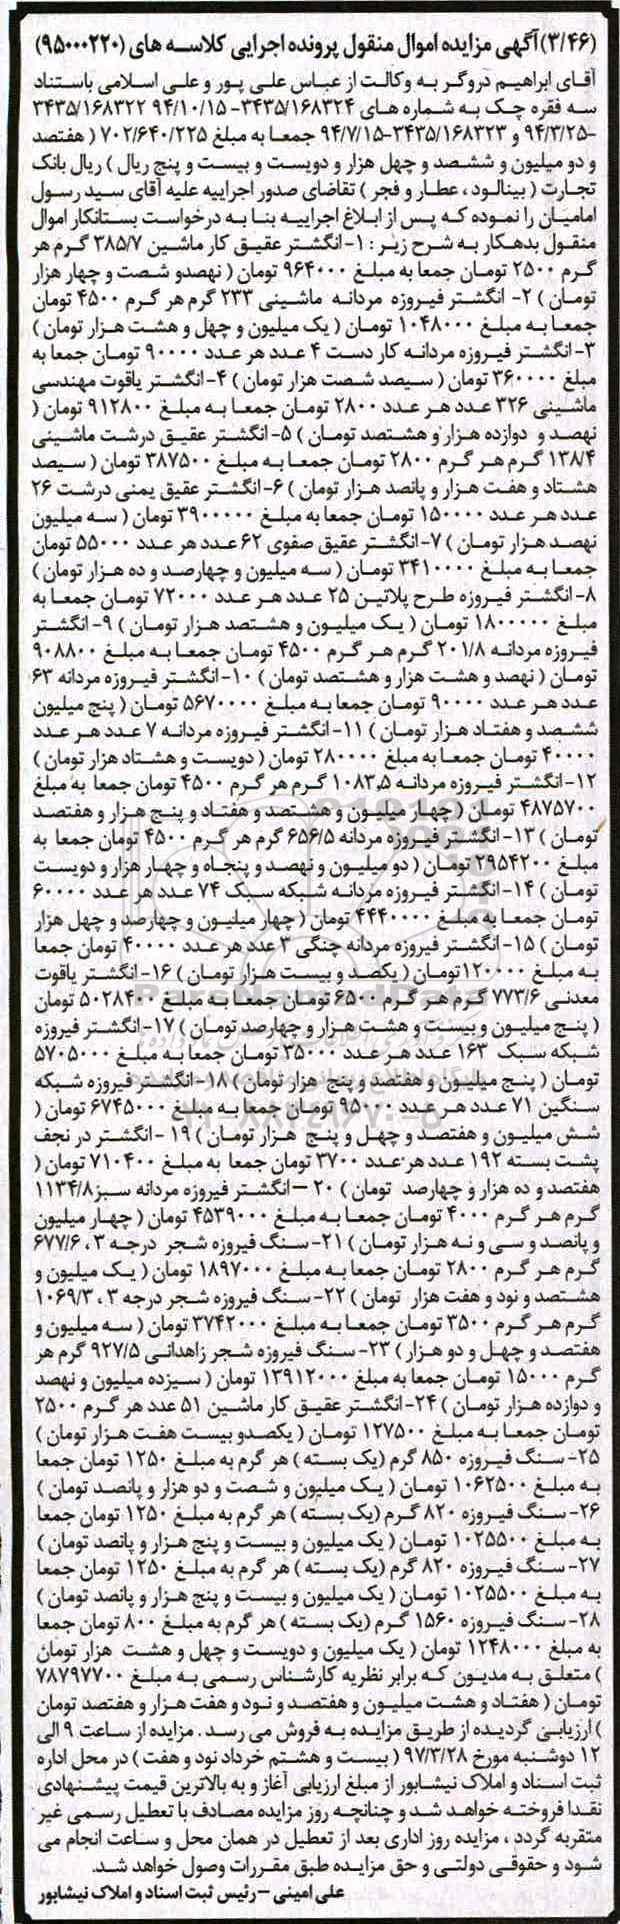 (۳/۴۶)آگهی مزایده اموال منقول پرونده اجرایی کلاسه های (۹۵۰۰۰۲۲۰)
آقای ابراهیم دروگر به وکالت از عباس علی پور و علی اسلامی باستناد
سه فقره چک به شماره های ۳۴۳۵/۱۶۸۳۲۴- ۹۴/۱۰/۱۵ ۳۴۳۵/۱۶۸۳۲۲
-۹۴/۳/۲۵ و ۳۴۳۵/۱۶۸۳۲۳-۹۴/۷/۱۵ جمعا به مبلغ ۷۰۲/۶۴۰/۲۲۵ ( هفتصد
و دو میلیون و ششصد و چهل هزار و دویست و بیست و پنج ریال ) ریال بانک
تجارت ( بینالود ، عطار و فجر ) تقاضای صدور اجراییه علیه آقای سید رسول
امامیان را نموده که پس از ابلاغ اجراییه بنا به درخواست بستانکار اموال
منقول بدهکار به شرح زیر : ۱- انگشتر عقیق کار ماشین ۳۸۵/۷ گرم هر
گرم ۲۵۰۰ تومان جمعا به مبلغ ۹۶۴۰۰۰ تومان ( نهصدو شصت و چهار هزار
تومان ) ۲- انگشتر فیروزه مردانه ماشینی ۲۳۳ گرم هر گرم ۴۵۰۰ تومان
جمعا به مبلغ ۱۰۴۸۰۰۰ تومان ( یک میلیون و چهل و هشت هزار تومان )
۳- انگشتر فیروزه مردانه کار دست ۴ عدد هر عدد ۹۰۰۰۰ تومان جمعا به
مبلغ ۳۶۰۰۰۰ تومان ( سیصد شصت هزار تومان ) ۴- انگشتر یاقوت مهندسی
ماشینی ۳۲۶ عدد هر عدد ۲۸۰۰ تومان جمعا به مبلغ ۹۱۲۸۰۰ تومان (
نهصد و دوازده هزار و هشتصد تومان ) ۵- انگشتر عقیق درشت ماشینی
۱۳۸/۴ گرم هر گرم ۲۸۰۰ تومان جمعا به مبلغ ۳۸۷۵۰۰ تومان ( سیصد
هشتاد و هفت هزار و پانصد هزار تومان ) ۶- انگشتر عقیق یمنی درشت ۲۶
عدد هر عدد ۱۵۰۰۰۰ تومان جمعا به مبلغ ۳۹۰۰۰۰۰ تومان ( سه میلیون
نهصد هزار تومان ) ۷- انگشتر عقیق صفوی ۶۲ عدد هر عدد ۵۵۰۰۰ تومان
جمعا به مبلغ ۳۴۱۰۰۰۰ تومان ( سه میلیون و چهارصد و ده هزار تومان )
۸- انگشتر فیروزه طرح پلاتین ۲۵ عدد هر عدد ۷۲۰۰۰ تومان جمعا به
مبلغ ۱۸۰۰۰۰۰ تومان ( یک میلیون و هشتصد هزار تومان ) ۹- انگشتر
فیروزه مردانه ۲۰۱/۸ گرم هر گرم ۴۵۰۰ تومان جمعا به مبلغ ۹۰۸۸۰۰
تومان ( نهصد و هشت هزار و هشتصد تومان ) ۱۰- انگشتر فیروزه مردانه ۶۳
عدد هر عدد ۹۰۰۰۰ تومان جمعا به مبلغ ۵۶۷۰۰۰۰ تومان ( پنج میلیون
ششصد و هفتاد هزار تومان ) ۱۱- انگشتر فیروزه مردانه ۷ عدد هر عدد
۴۰۰۰۰ تومان جمعا به مبلغ ۲۸۰۰۰۰ تومان ( دویست و هشتاد هزار تومان )
۱۲- انگشتر فیروزه مردانه ۱۰۸۳,۵ گرم هر گرم ۴۵۰۰ تومان جمعا به مبلغ
۴۸۷۵۷۰۰ تومان ( چهار میلیون و هشتصد و هفتاد و پنج هزار و هفتصد
تومان ) ۱۳- انگشتر فیروزه مردانه ۶۵۶/۵ گرم هر گرم ۴۵۰۰ تومان جمعا به
مبلغ ۲۹۵۴۲۰۰ تومان ( دو میلیون و نهصد و پنجاه و چهار هزار و دویست
تومان ) ۱۴- انگشتر فیروزه مردانه شبکه سبک ۷۴ عدد هر عدد ۶۰۰۰۰
تومان جمعا به مبلغ ۴۴۴۰۰۰۰ تومان ( چهار میلیون و چهارصد و چهل هزار
تومان ) ۱۵- انگشتر فیروزه مردانه چنگی ۳ عدد هر عدد ۴۰۰۰۰ تومان جمعا
به مبلغ ۱۲۰۰۰۰تومان ( یکصد و بیست هزار تومان ) ۱۶- انگشتر یاقوت
معدنی ۷۷۳/۶ گرم هر گرم ۶۵۰۰ تومان جمعا به مبلغ ۵۰۲۸۴۰۰ تومان
( پنج میلیون و بیست و هشت هزار و چهارصد تومان ) ۱۷- انگشتر فیروزه
شبکه سبک ۱۶۳ عدد هر عدد ۳۵۰۰۰ تومان جمعا به مبلغ ۵۷۰۵۰۰۰
تومان ( پنج میلیون و هفتصد و پنج هزار تومان) ۱۸- انگشتر فیروزه شبکه
سنگین ۷۱ عدد هر عدد ۹۵۰۰۰ تومان جمعا به مبلغ ۶۷۴۵۰۰۰ تومان (
شش میلیون و هفتصد و چهل و پنج هزار تومان ) ۱۹ - انگشتر در نجف
پشت بسته ۱۹۲ عدد هر عدد ۳۷۰۰ تومان جمعا به مبلغ ۷۱۰۴۰۰ تومان (
هفتصد و ده هزار و چهارصد تومان ) ۲۰ – انگشتر فیروزه مردانه سبز۱۱۳۴/۸
گرم هر گرم ۴۰۰۰ تومان جمعا به مبلغ ۴۵۳۹۰۰۰ تومان ( چهار میلیون
و پانصد و سی و نه هزار تومان ) ۲۱- سنگ فیروزه شجر درجه ۳ ، ۶۷۷/۶
گرم هر گرم ۲۸۰۰ تومان جمعا به مبلغ ۱۸۹۷۰۰۰ تومان ( یک میلیون و
هشتصد و نود و هفت هزار تومان ) ۲۲- سنگ فیروزه شجر درجه ۳ ، ۱۰۶۹/۳
گرم هر گرم ۳۵۰۰ تومان جمعا به مبلغ ۳۷۴۲۰۰۰ تومان ( سه میلیون و
هفتصد و چهل و دو هزار ) ۲۳- سنگ فیروزه شجر زاهدانی ۹۲۷/۵ گرم هر
گرم ۱۵۰۰۰ تومان جمعا به مبلغ ۱۳۹۱۲۰۰۰ تومان ( سیزده میلیون و نهصد
و دوازده هزار تومان ) ۲۴- انگشتر عقیق کار ماشین ۵۱ عدد هر گرم ۲۵۰۰
تومان جمعا به مبلغ ۱۲۷۵۰۰ تومان ( یکصدو بیست هفت هزار تومان )
۲۵- سنگ فیروزه ۸۵۰ گرم (یک بسته ) هر گرم به مبلغ ۱۲۵۰ تومان جمعا
به مبلغ ۱۰۶۲۵۰۰ تومان ( یک میلیون و شصت و دو هزار و پانصد تومان )
۲۶- سنگ فیروزه ۸۲۰ گرم (یک بسته ) هر گرم به مبلغ ۱۲۵۰ تومان جمعا
به مبلغ ۱۰۲۵۵۰۰ تومان ( یک میلیون و بیست و پنج هزار و پانصد تومان )
۲۷- سنگ فیروزه ۸۲۰ گرم (یک بسته ) هر گرم به مبلغ ۱۲۵۰ تومان جمعا
به مبلغ ۱۰۲۵۵۰۰ تومان ( یک میلیون و بیست و پنج هزار و پانصد تومان )
۲۸- سنگ فیروزه ۱۵۶۰ گرم (یک بسته ) هر گرم به مبلغ ۸۰۰ تومان جمعا
به مبلغ ۱۲۴۸۰۰۰ تومان ( یک میلیون و دویست و چهل و هشت هزار تومان
) متعلق به مدیون که برابر نظریه کارشناس رسمی به مبلغ ۷۸۷۹۷۷۰۰
تومان ( هفتاد و هشت میلیون و هفتصد و نود و هفت هزار و هفتصد تومان
) ارزیابی گردیده از طریق مزایده به فروش می رسد . مزایده از ساعت ۹ الی
۱۲ دوشنبه مورخ ۹۷/۳/۲۸ ( بیست و هشتم خرداد نود و هفت ) در محل اداره
ثبت اسناد و املاک نیشابور از مبلغ ارزیابی آغاز و به بالاترین قیمت پیشنهادی
نقدا فروخته خواهد شد و چنانچه روز مزایده مصادف با تعطیل رسمی غیر
متقربه گردد ، مزایده روز اداری بعد از تعطیل در همان محل و ساعت انجام می
شود و حقوقی دولتی و حق مزایده طبق مقررات وصول خواهد شد.
علی امینی – رئیس ثبت اسناد و املاک نیشابور
ParsNamadData